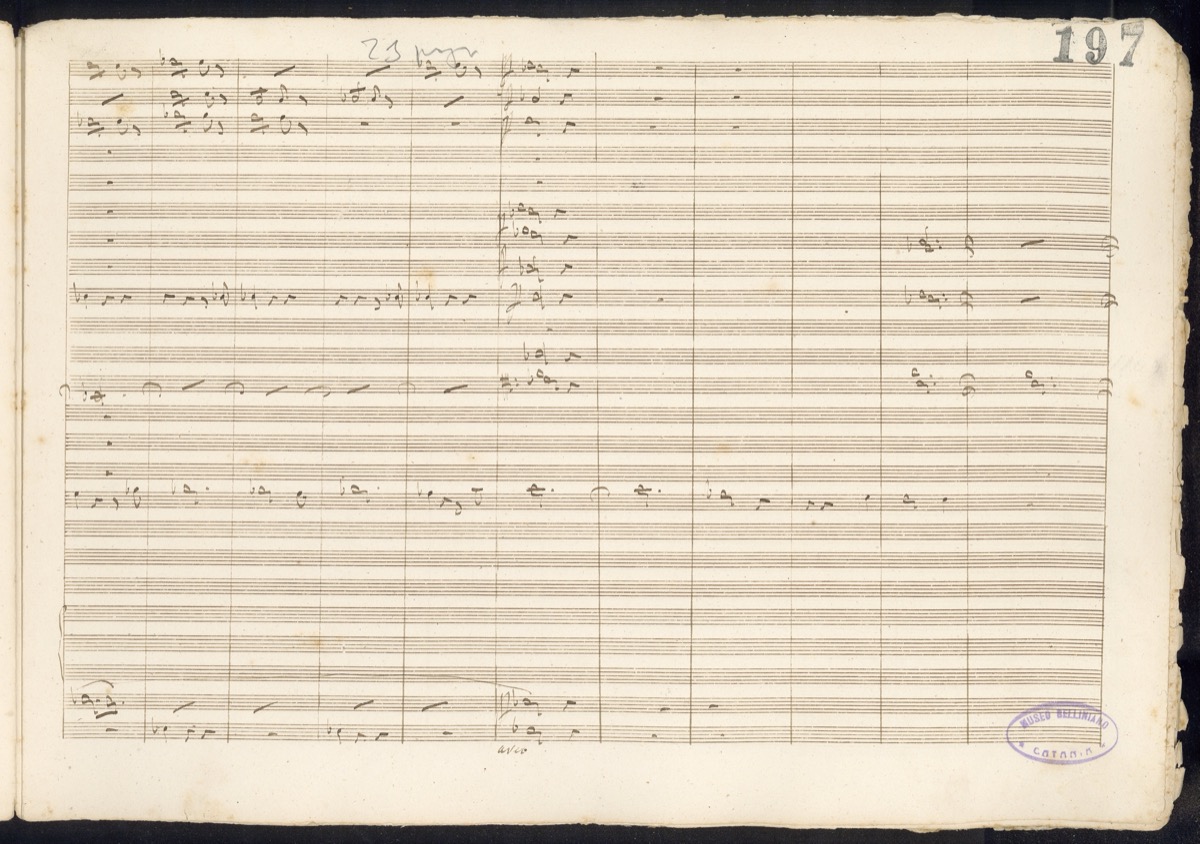 197
arco
MUSEO BELLINIANO
CATANIA